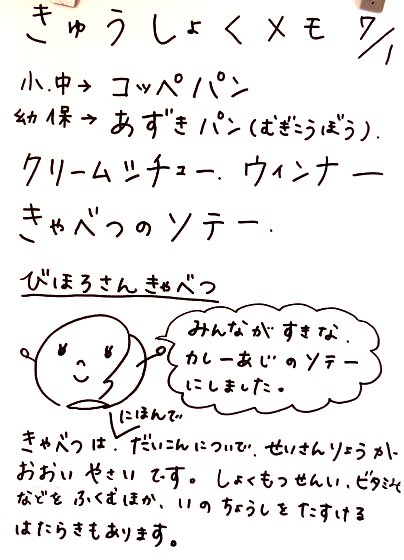 きゅうしょくメモ 7/1
小.中→ コッペパン
幼保→ あずきパン(むぎこうぼう).
クリームシチュー. ウィンナー
きゃべつのソテー.
びほろさんきゃべつ
みんながすきな.
カレーあじのソテー
にしました。
にほんで
きゃべつは、だいこんについで、せいさんりょうが
おおい やさいです。しょくもつせんい、ビタミンC
などを ふくむほか、いの ちょうしを たすける
はたらきもあります。